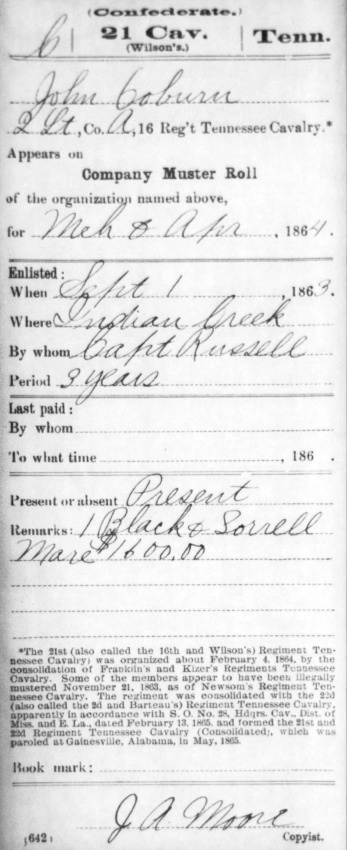 (Confederate.)
C | 21 Cav. | Tenn.
(Wilson's.)
John Coburn
2 Lt, Co. A, 16 Reg't Tennessee Cavalry.*
Appears on
Company Muster Roll
of the organization named above,
for Mch & Apr, 1864.
Enlisted:
When Sept 1, 1863.
Where Indian Creek
By whom Capt Russell
Period 3 years
Last paid:
By whom
To what time , 186 .
Present or absent Present
Remarks: 1 Black & Sorrell
Mare $1600.00
*The 21st (also called the 16th and Wilson's) Regiment Ten-
nessee Cavalry) was organized about February 4, 1864, by the
consolidation of Franklin's and Kizer's Regiments Tennessee
Cavalry. Some of the members appear to have been illegally
mustered November 21, 1863, as of Newsom's Regiment Ten-
nessee Cavalry. The regiment was consolidated with the 22d
(also called the 2d and Barteau's) Regiment Tennessee Cavalry,
apparently in accordance with S. O. No. 28, Hdqrs. Cav., Dist. of
Miss. and E. La., dated February 13, 1865, and formed the 21st and
22d Regiment Tennessee Cavalry (Consolidated), which was
paroled at Gainesville, Alabama, in May, 1865.
Book mark:
J. A. Moore
(642) Copyist.